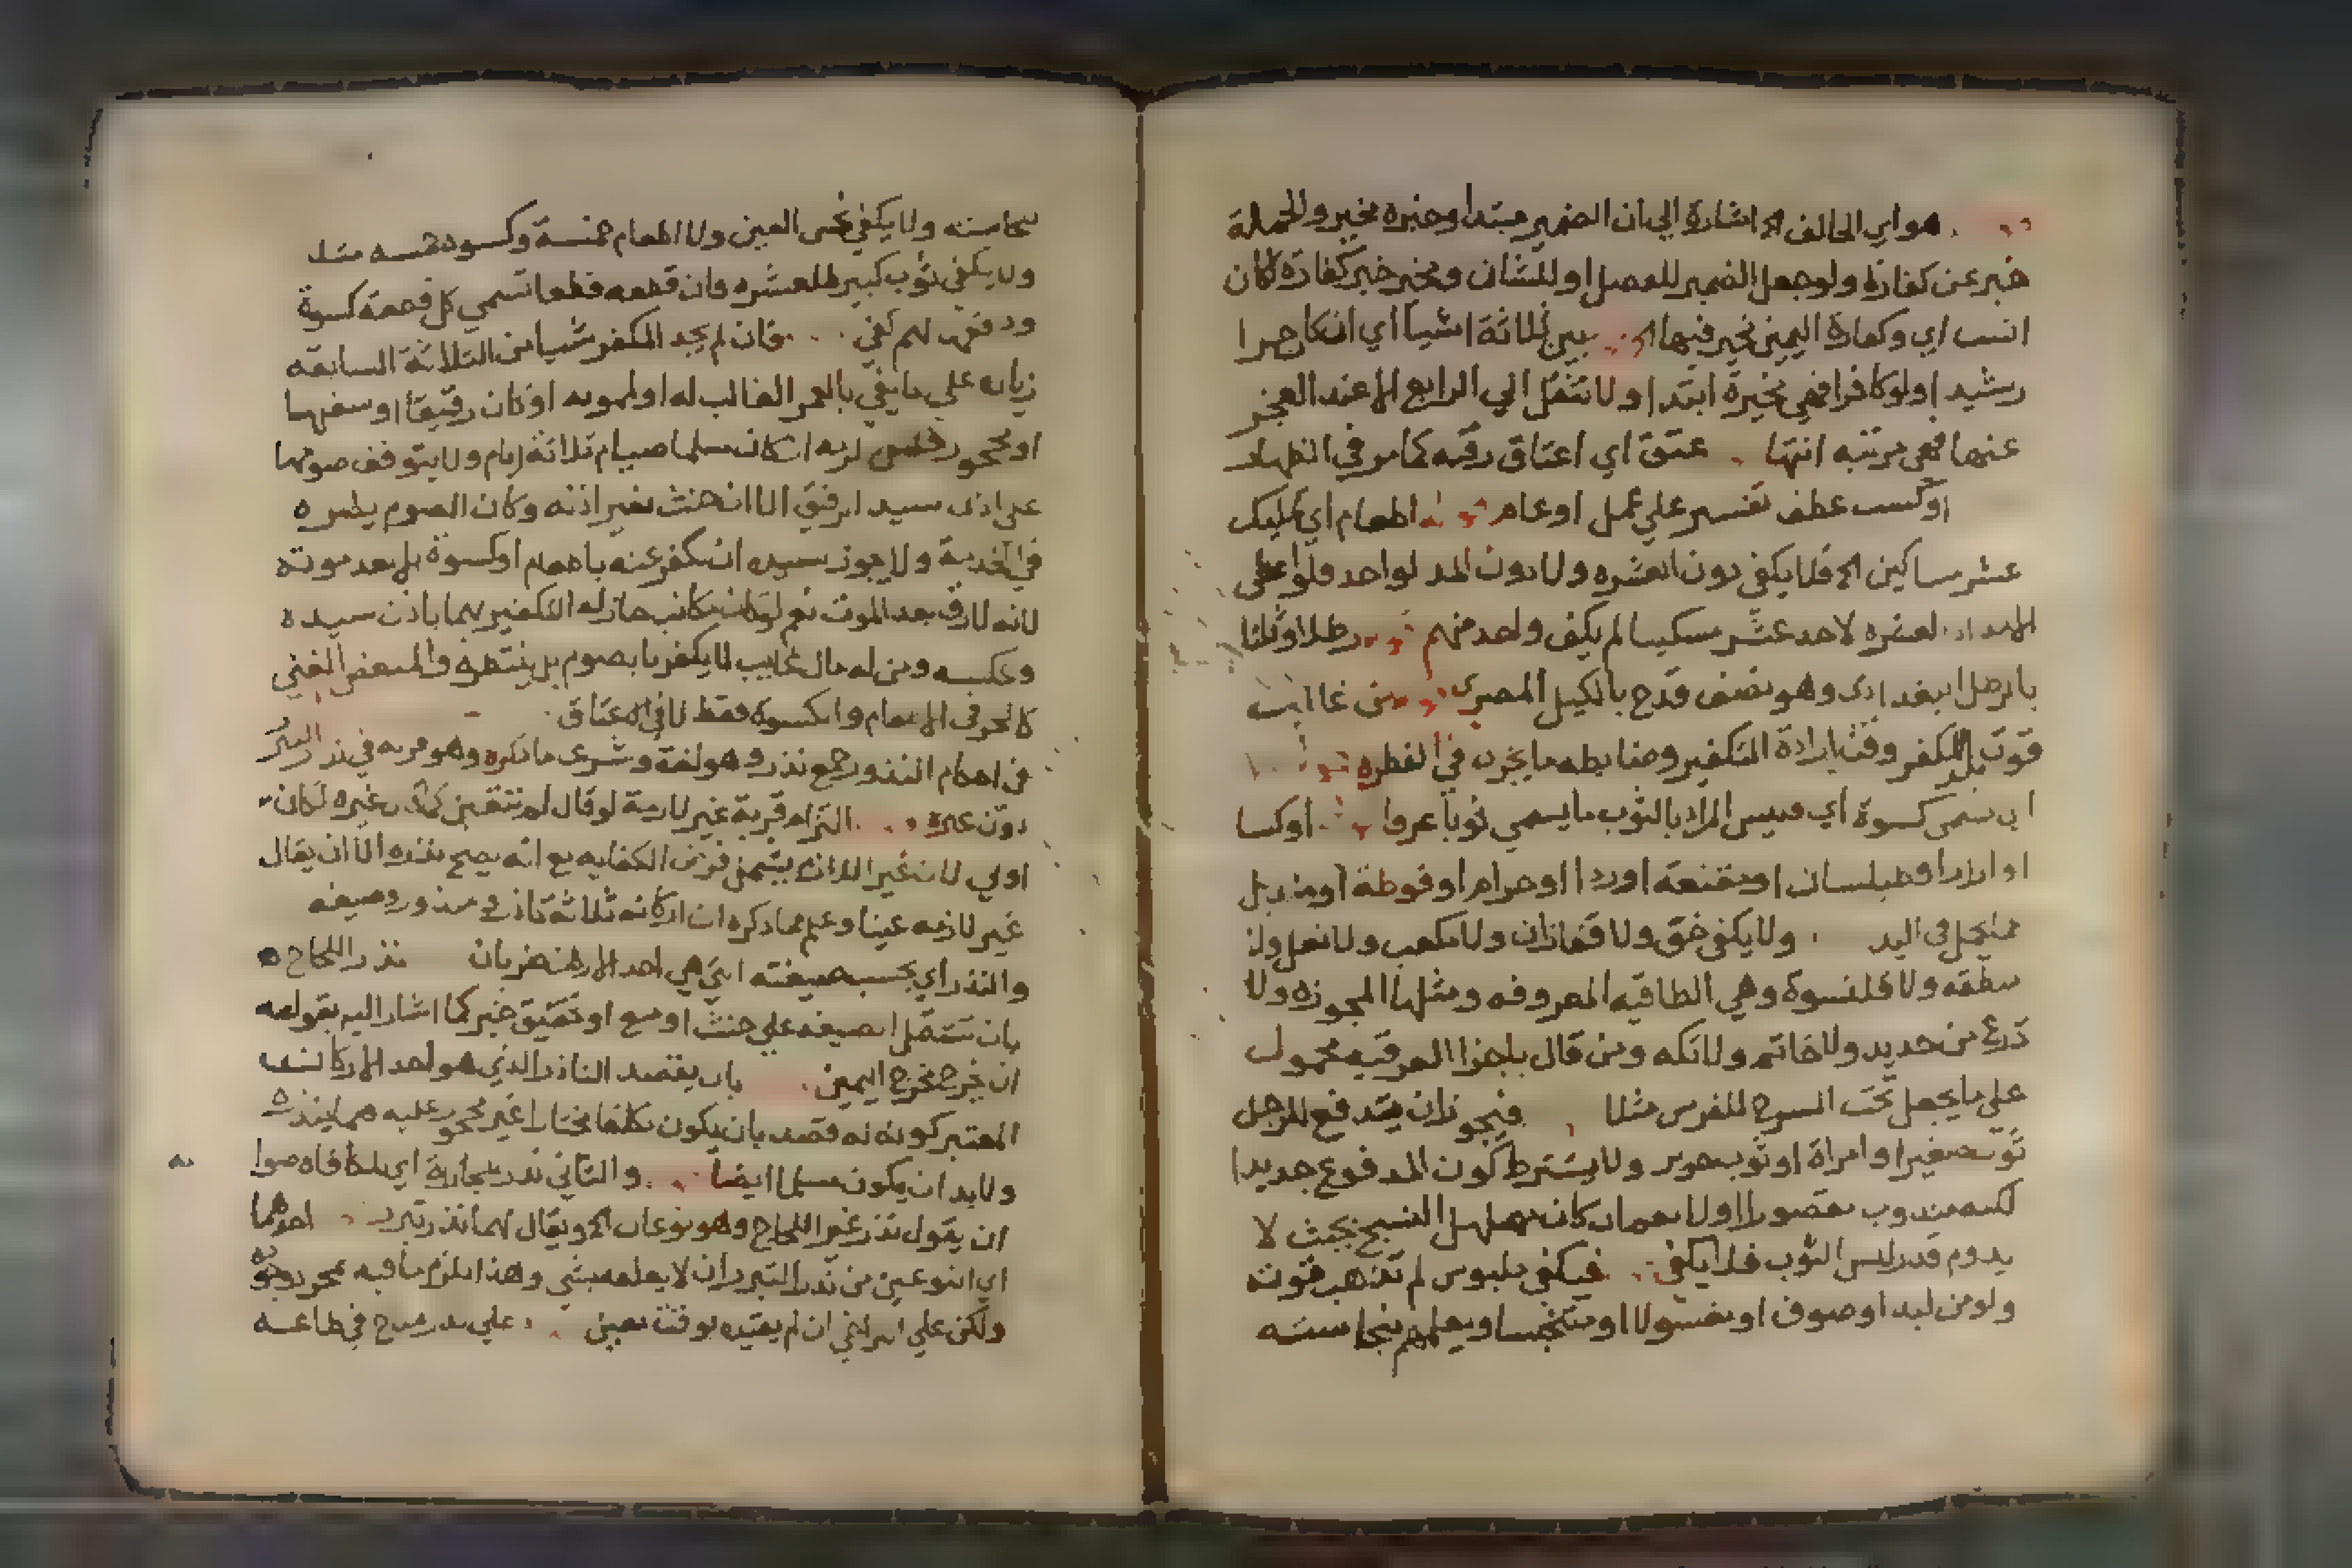 هو اي الحالف الخ اشارة الي ان الضمير مبتدا وخبره مخير والجملة
خبر عن كفارة ولو جعل الضمير للفصل او للشان ومخير خبر كفارة لكان
انسب اي وكفارة اليمين مخير فيها الخ بين ثلاثة اشيا اي ان كان حرا
رشيدا ولو كافرا فهي مخيرة ابتدا ولا تنتقل الي الرابع الا عند العجز
عنها فهي مرتبة انتها عتق اي اعتاق رقبه كما مر في الظهار
او كسب عطف تفسير علي عمل او عام اطعام اي تمليك
عشر مساكين الخ فلا يكفي دون العشره ولا دون المد لواحد فلو اعطي
الامداد العشره لاحد عشر مسكينا لم يكف واحد منهم رطلا وثلثا
بالرطل البغدادي وهو نصف قدح بالكيل المصري من غالب
قوت بلد المكفر وقت ارادة التكفير وضابطه ما يجزي في الفطره
اي يسمي كسوة اي فليس المراد بالثوب ما يسمي ثوبا عرفا او كسا
او ازارا وطيلسان او مقنعة او ردا او حرام او فوطة او منديل
مما يحمل في اليد ولا يكفي خف ولا قفازان ولا مكعب ولا نعل ولا
منطقه ولا قلنسوة وهي الطاقيه المعروفه ومثلها المجوزه ولا
درع من حديد ولا خاتم ولا تكه ومن قال باجزا العرقيه محمول
علي ما يجعل تحت السرج للفرس مثلا فيجوز ان يتدفع للرجل
ثوب صغير او امراة او ثوب حرير ولا يشترط كون المدفوع جديدا
لكنه مندوب مقصورا اولا نعم ان كان مهلهل النسج بحيث لا
يدوم قدر لبس الثوب فلا يكفي فيكفي ملبوس لم تذهب قوته
ولو من لبد او صوف او مغسولا او متنجسا ويعلمهم بنجاسته
بنجاسته ولا يكفي نجس العين ولا اطعام خمسة وكسوة خمسه مثلا
ولا يكفي ثوب كبير للعشره فان قطعه قطعا تسمي كل قطعة كسوة
ودفعها لهم كفي فان لم يجد المكفر شيا من الثلاثة السابقه
زياده علي ما يفي بالعمر الغالب له او لمونه او كان رقيقا او سفيها
او محجور فلس لزمه ان كان مسلما صيام ثلاثة ايام ولا يتوقف صومها
علي اذن سيد الرقيق الا ان حنث بغير اذنه وكان الصوم يضره
في الخدمة ولا يجوز سيده ان يكفر عنه باطعام او كسوة الا بعد موته
لانه لا رق بعد الموت نعم لو كان مكاتب جاز له التكفير بهما باذن سيده
وعكسه ومن له مال غايب لا يكفر بالصوم بل ينتظره والمبعض الغني
كالحر في الاطعام والكسوة فقط لا في الاعتاق
في احكام النذور جمع نذر وهو لغة وشرعا ما ذكره وهو قربه في نذر التبرر
دون غيره التزام قربة غير لازمة لو قال لم تتعين كما قال غيره لكان
اولي لان غير اللازم يشمل فرض الكفايه مع انه يصح نذره الا ان يقال
غير لازمه عينا وعلم مما ذكره ان اركانه ثلاثة ناذر ومنذور وصيغه
والنذر اي بحسب صيغته التي هي احد الاركان ضربان نذر اللجاج
بان تشتمل الصيغه علي حث او منع او تحقيق خبر كما اشار اليه بقوله
ان يخرج مخرج اليمين بان يقصد الناذر الذي هو احد الاركان
المعتبر كونه له قصد بان يكون مكلفا مختارا غير محجور عليه فيما ينذره
ولا بد ان يكون مسلما ايضا والثاني نذر مجازاة اي مكافاه
ان يقول نذر غير اللجاج وهو نوعان الخ ويقال لهما نذر تبرر احدهما
اي النوعين من نذر التبرر ان لا يعلقه بشي وهذا يلزم ما فيه
ولكن علي التراخي ان لم يقيده بوقت معين علي نذر مباح في طاعه